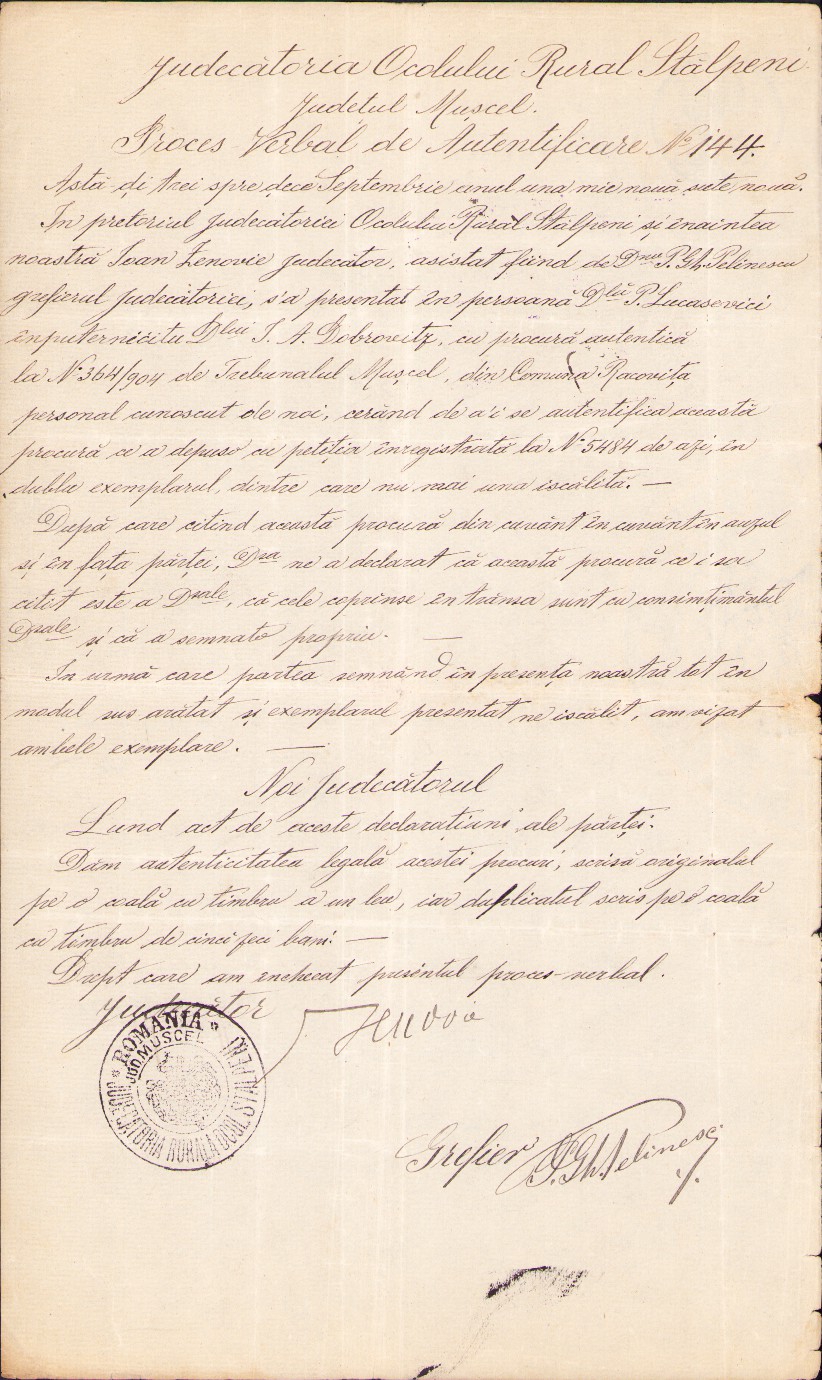 Judecătoria Ocolului Rural Stâlpeni
Județul Mușcel.
Proces Verbal de Autentificare No 144.
Astă-ḑi trei spre ḑece Septembrie anul una mie nouă sute nouă.
In pretoriul Judecătoriei Ocolului Rural Stâlpeni și înaintea
noastră Ioan Zenovie Judecător, asistat fiind de Dnu P. Gh. Pelinescu
grefierul Judecătoriei, s'a presentat în persoană Dlu P. Lucasevici
înputernicitu Dlui I. A. Dobrovitz, cu procură autentică
la No 364/904 de Tribunalul Mușcel, din Comuna Racovița
personal cunoscut de noi, cerând de a'i se autentifica această
procură ce a depuso cu petiția înregistrată la No 5484 de aḑi, în
dublu exemplarul, dintre care nu mai una iscălită. —
După care citind această procură din cuvânt în cuvânt în auzul
și în fața părței, Dsa ne a declarat că această procură ce i sa
citit este a Dsale, că cele coprinse în trânsa sunt cu consimțimântul
Dsale și că a semnato propriu. —
In urmă care partea semnând în presența noastră tot în
modul sus arătat și exemplarul presentat ne iscălit, am vizat
ambele exemplare. —
Noi Judecătorul
Lund act de aceste declarațiuni ale părței.
Dăm autenticitatea legală acestei procuri, scrisă originalul
pe o coală cu timbru a un leu, iar duplicatul scris pe o coală
cu timbru de cinci ḑeci bani. —
Drept care am închecat presentul proces-verbal.
Judecător
Zenovie
ROMANIA
JUD. MUSCEL
JUDECATORIA RURALA OCOL STALPENI
Grefier P. Gh. Pelinescu